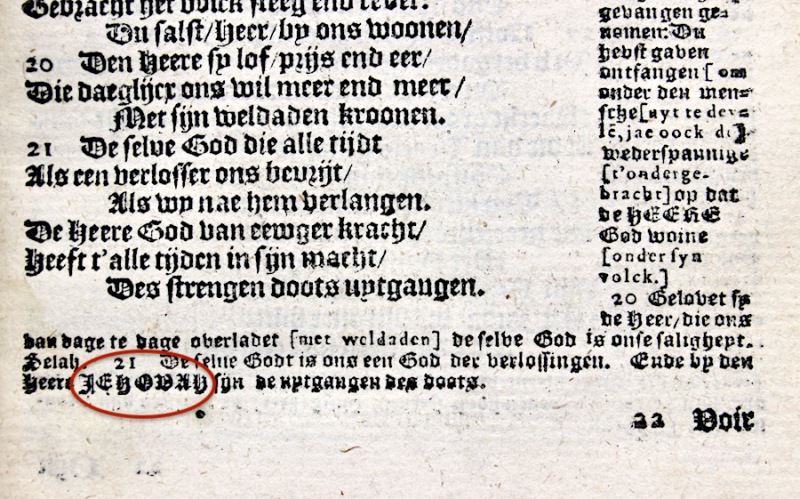 Gebracht het volck steeg end rebel:
Du salst/Heer/by ons woonen/
20 Den Heere sy lof/prijs end eer/
Die daeglijcx ons wil meer end meer/
Met sijn weldaden kroonen.
21 De selve God die alle tijdt
Als een verlosser ons bevrijt/
Als wy nae hem verlangen.
De Heere God van eewger kracht/
Heeft t'alle tijden in sijn macht/
Des strengen doots uytgangen.
gevangen ge-
nomen: Du
hebst gaven
ontfangen [om
onder den men-
sche[uyt te dee-
lē, jae oock di]
wederspannige
[t'onderge-
bracht] op dat
de HEERE
God woine
[onder syn
volck.]
20 Gelovet sy
de Heer/die ons
van dage te dage overladet [met weldaden] de selve God is onse salighept.
Selah. 21 De selve Godt is ons een God der verlossingen. Ende by den
heere JEHOVAH sijn de uytgangen des doots.
22 Voir